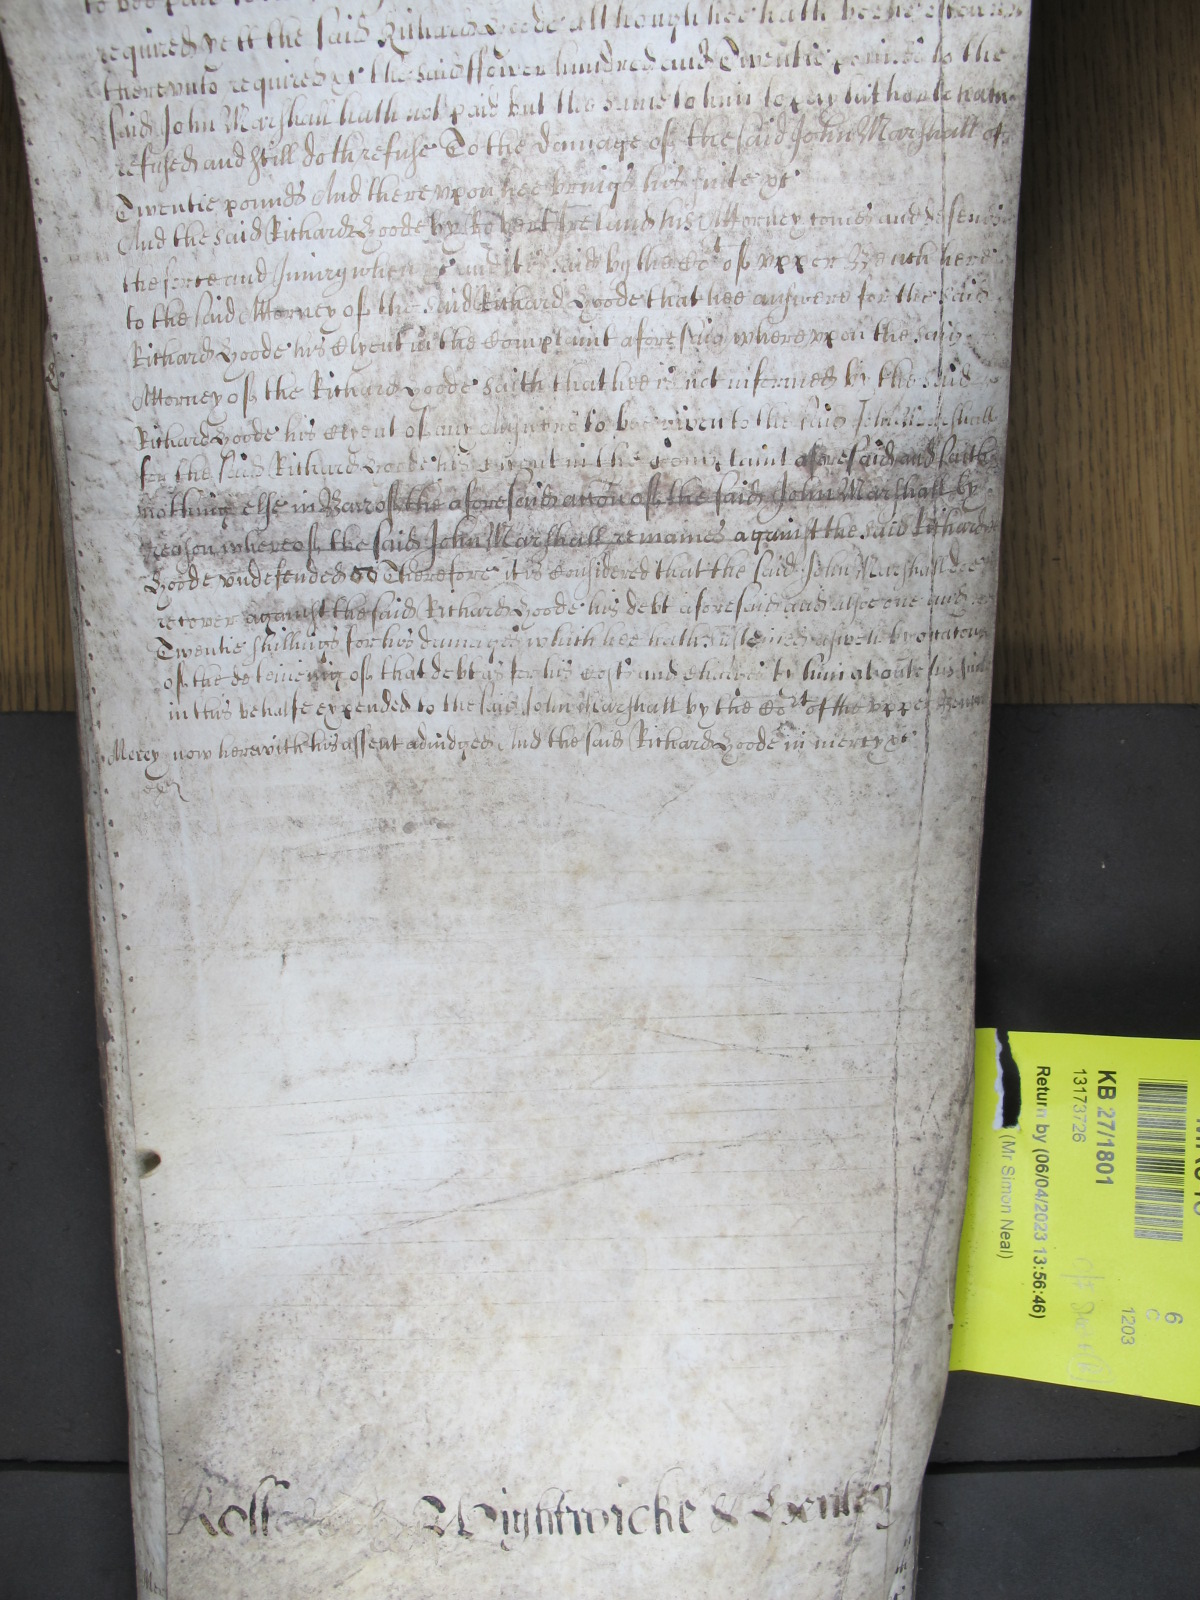 to bee paid
required yett the said Richard Goode although hee hath beene often
therevnto required &c the said ffower hundred and Twentie pounds to the
said John Marshall hath not paid but the same to him to pay hitherto hath
refused and still doth refuse To the damage of the said John Marshall of
Twentie pounds And therevpon hee brings his suite &c
And the said Richard Goode by Robert Ireland his Attorney comes and defends
the force and Iniury when &c and itt is said by the Cort of vpper Bench here
to the said Attorney of the said Richard Goode that hee answere for the said
Richard Goode his Clyent in the Complaint aforesaid wherevpon the said
Attorney of the Richard Goode saith that hee is not informed by the said
Richard Goode his Clyent of any Answere to bee given to the said John Marshall
for the said Richard Goode his Clyent in the Complaint aforesaid and saith
nothing else in Barr of the aforesaid accon of the said John Marshall by
reason whereof the said John Marshall remaines against the said Richard
Goode vndefended Therefore itt is Considered that the said John Marshall doe
recover against the said Richard Goode his debt aforesaid and alsoe one and
Twentie shillings for his damages which hee hath susteined aswell by occacon
of the deteineing of that debt as for his Costs and Charges by him aboute his suite
in this behalfe expended to the said John Marshall by the Cort of the vpper Bench
Mercy now here with his assent adiudged And the said Richard Goode in mercy &c
Wightwicke & Henley
KB 27/1801
13173726
Return by (06/04/2023 13:56:46)
(Mr Simon Neal)
6
C
1203